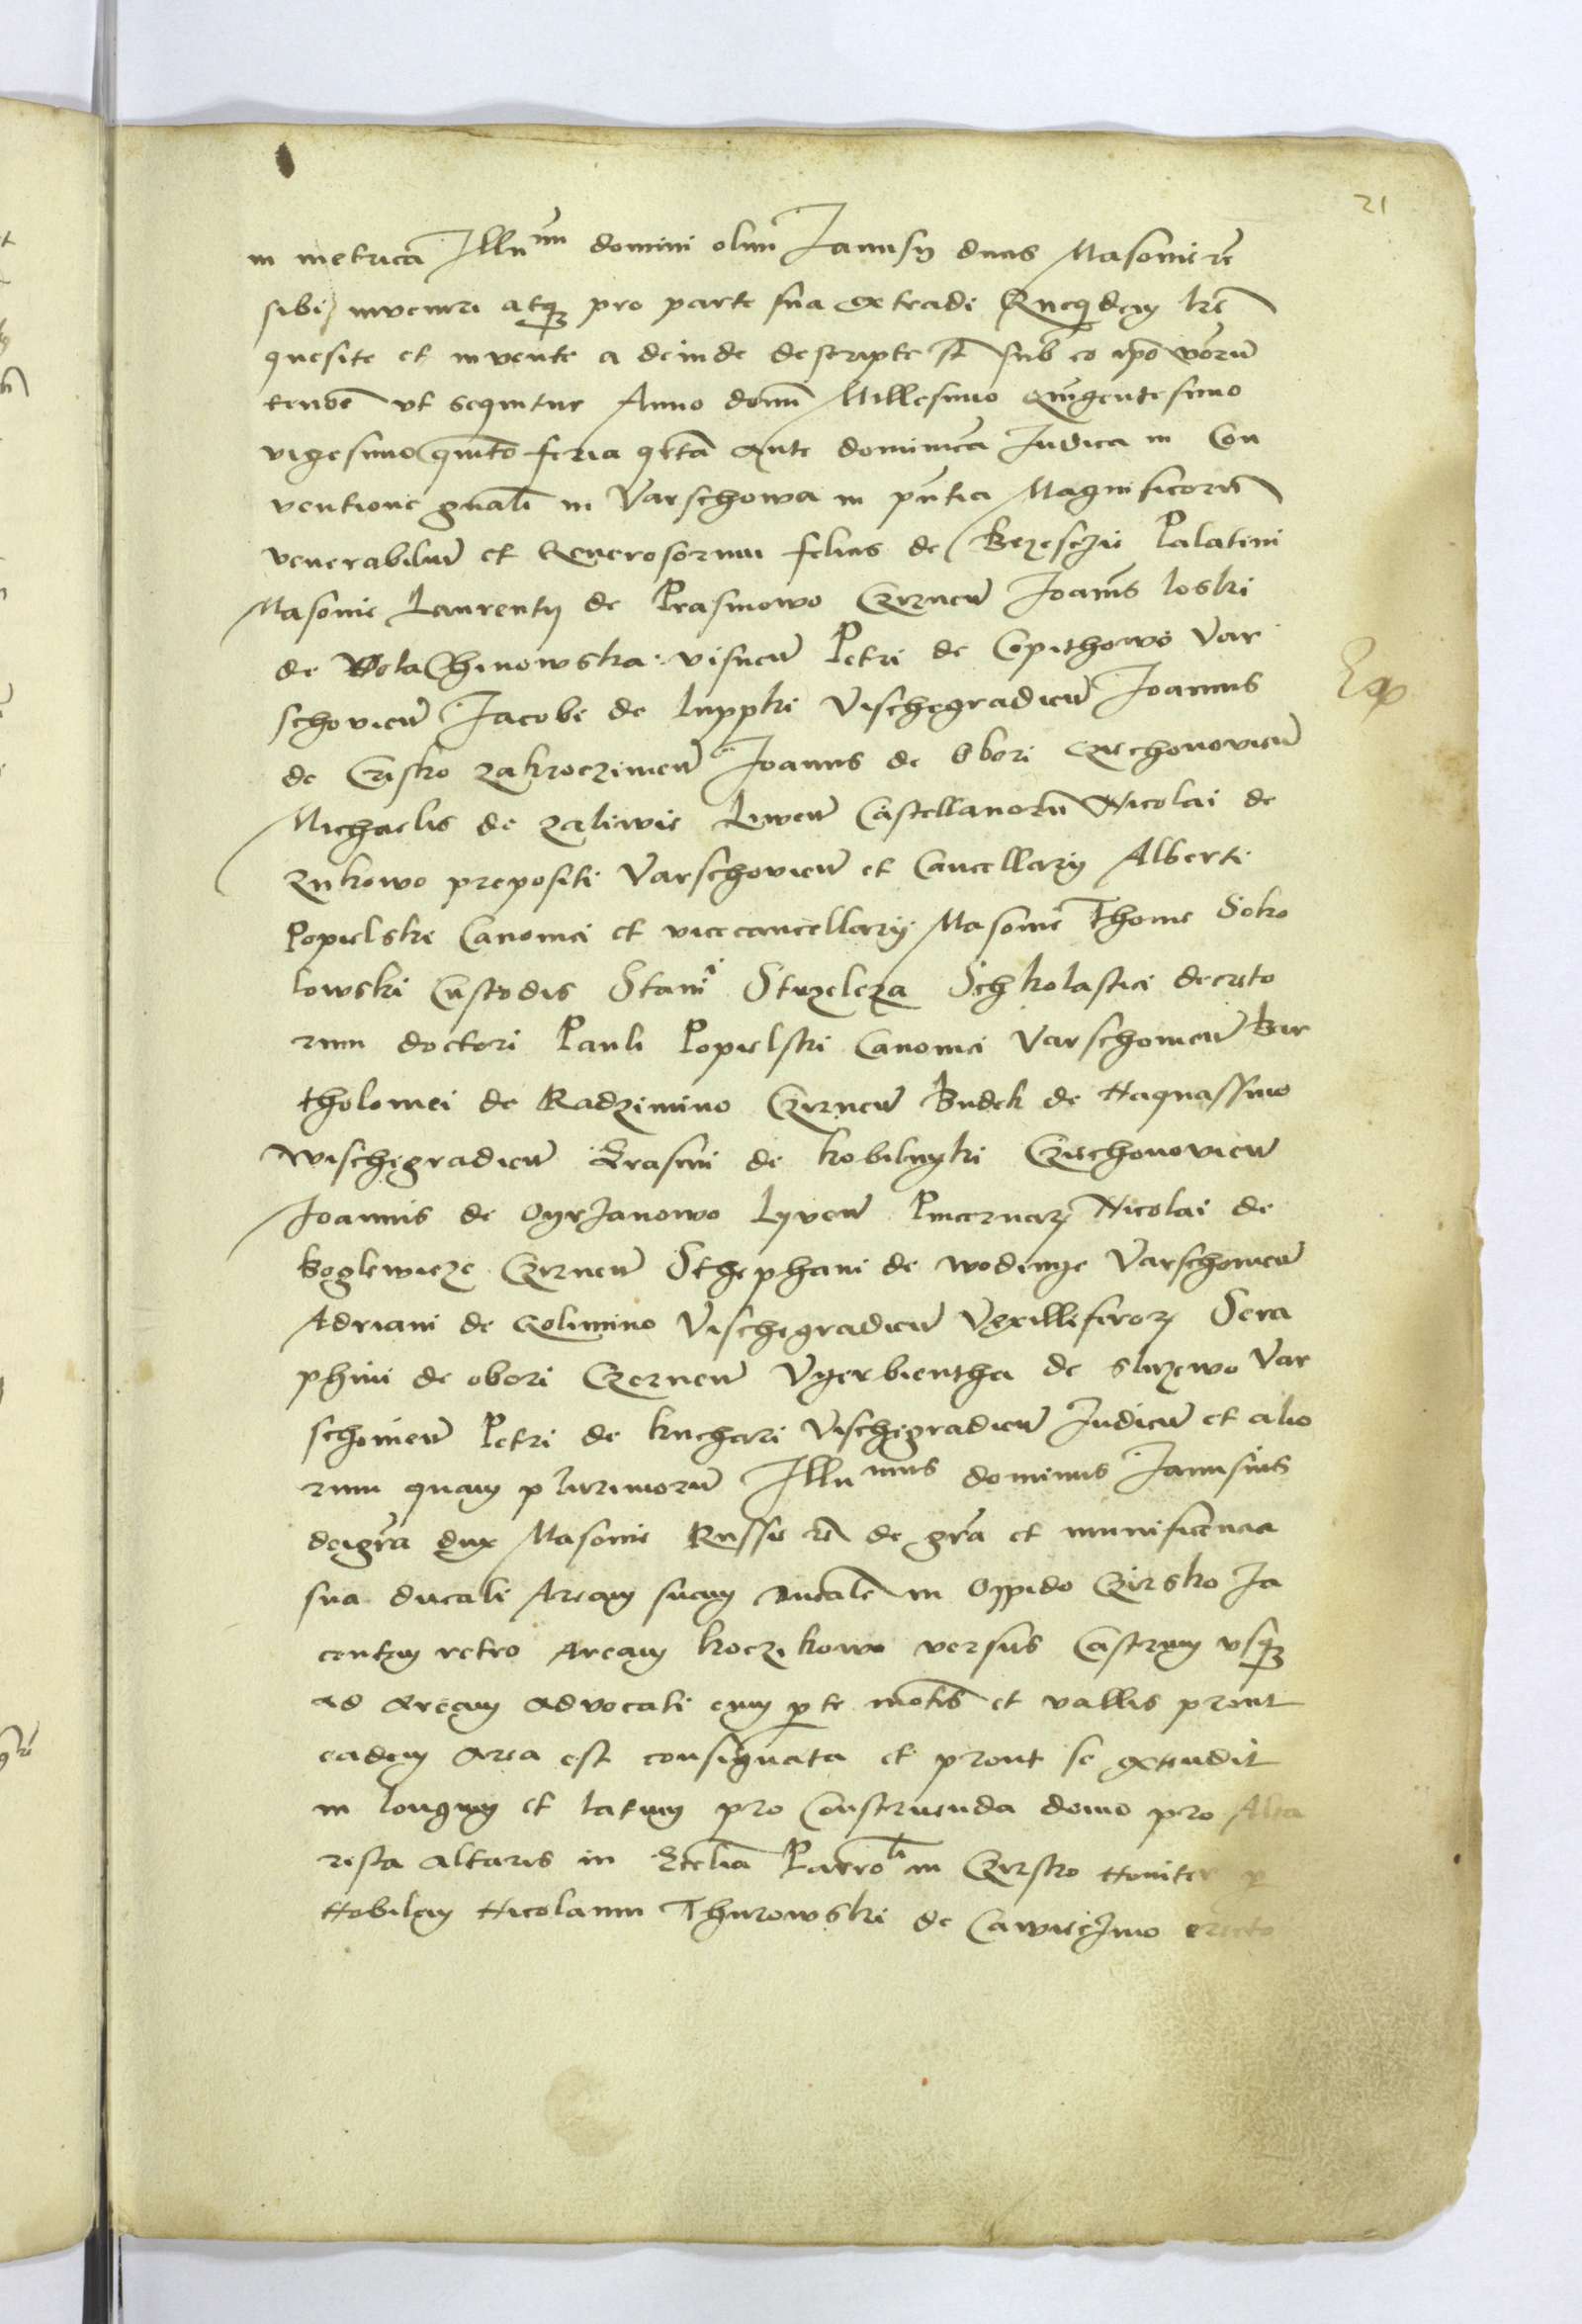 21
in metrica Illu^mi domini olim Janusij ducis Masovie rē
sibi inveniri atq3 pro parte sua extradi Queq̄dem lrē
quesite et invente a deinde descripte st̄ sub eo ipō vōrū
tenōē ut sequitur Anno domī Millesimo Quīgentesimo
vigesimo quīto feria q̄rta ante dominicā Judica in Con
ventione gn̄ali in Varschowa in pn̄tia Magnificorū
venerabiliū et Generosorum felicis de Brzesczie Palatini
Masovie Laurentij de Prasmowo Czrneñ Joannis Loski
de Wola Chinowska visneñ Petri de Copithowo Var
schovieñ Jacobi de luppki Vischegradieñ Joannis
de Crisko zakroczimeñ Joannis de Obori Cziechonovieñ
Michaelis de zaliwie Liweñ Castellanorū Nicolai de
zukowo prepositi Varschovieñ et Cancellarij Alberti
Popielski Canonici et vicecancellarij Masovie Thome Soko
lowski Custodis Stanⁱ Strzelcza Schkolastici decreto
rum doctori Pauli Popielski Canonici Varschovieñ Bar
tholomei de Radzimino Czrneñ Budek de Naquassino
Wischegradieñ Erasmi de kobilnyki Cziechonovieñ
Joannis de Oyrzanowo Lyveñ Pincernarꝝ Nicolai de
Boglewicze Czrneñ Sthephani de wodinye Varschovieñ
Adriani de Golimino Vischegradieñ Vexilliferorꝝ Sera
phini de obori Czerneñ Vyerbientha de sluzewo Var
schovieñ Petri de kuchari Vischegradieñ Judicū et alio
rum quam plurimorū Illu^mus dominus Janusius
dei gr̄a dux Masovie Russie rē de gr̄a et munificencia
sua ducali Aream suam ducalē in Oppido Czirsko Ja
centem retro Aream koczikowo versus Castrum usq3
ad Aream advocati cum p̄te mōtis et vallis prout
eadem Area est consignata et prout se extendit
in longum et latum pro Construenda domo pro Alta
rista altaris in Ecclīa Parro^li in Czrsko Noviter p̄
Nobilem Nicolaum Thurowski de erecto